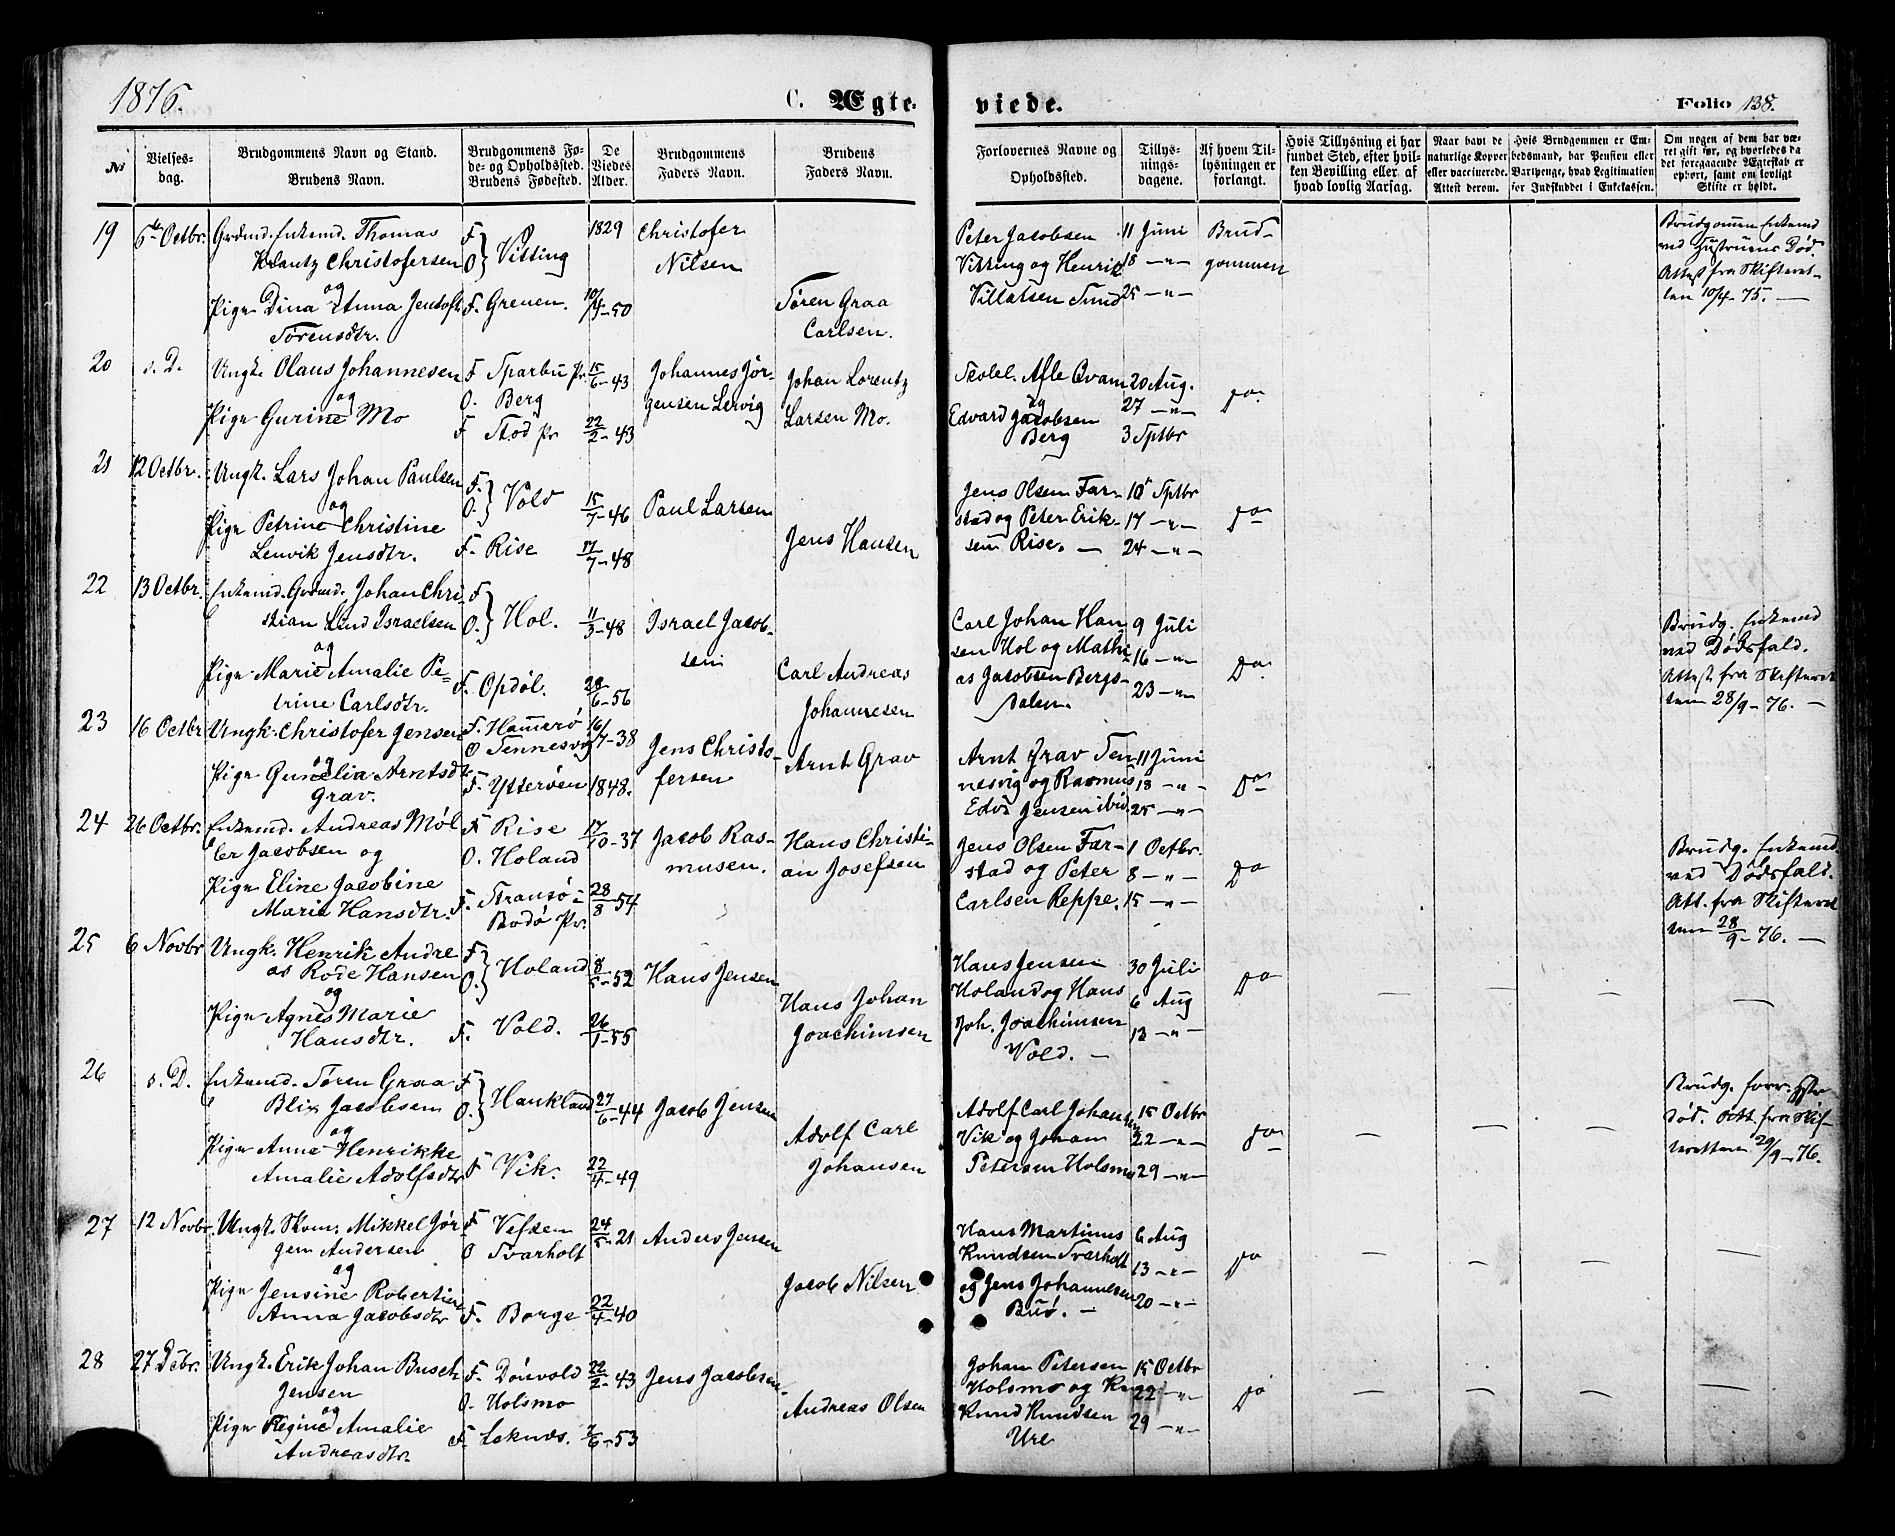 1876.
C. Ægte-
viede.
Folio 138.
No
Vielses-
dag.
Brudgommens Navn og Stand.
Brudens Navn.
Brudgommens Fø-
de- og Opholdssted.
Brudens Fødested.
De
Viedes
Alder.
Brudgommens
Faders Navn.
Brudens
Faders Navn.
Forlovernes Navne og
Opholdssted.
Tillys-
nings-
dagene.
Af hvem Til-
lysningen er
forlangt.
Hvis Tillysning ei har
fundet Sted, efter hvil-
ken Bevilling eller af
hvad lovlig Aarsag.
Naar havt de
naturlige Kopper
eller vaccinerede.
Attest derom.
Hvis Brudgommen er Em-
bedsmand, har Pension eller
Vartpenge, hvad Legitimation
for Indskuddet i Enkekassen.
Om nogen af dem har væ-
ret gift før, og hvorledes da
det foregaaende Ægteskab er
ophørt, samt om lovligt
Skifte er holdt.
19 6te Octbr. Grdmd. Enkemd. Thomas F. 1829 Christofer Peter Jacobsen 11 Juni Brud- Brudgommen Enkemd
Krantz Christofersen O. Vitting Nilsen Vitting og Henrik 18 -"- gommen ved Hustruens Død.
og
Pige Dina Anna Jensofi F. Greuen. 10/4-50 Søren Graa Villatsen Sund 25 -"- Attest fra Skifteret-
Sørensdtr. Carlsen. ten 10/4-75. —
20 s. D. Ungk. Olaus Johannesen F Sparbu Pr. 15/6-43 Johannes Jør- Johan Lorentz Skolel. Atle Qvam 20 Aug.
og O. Berg gensen Lervig Larsen Mo. og 27 -"- Do
Pige Gurine Mo F Stod Pr 22/2-43 Edvard Jacobsen
Berg 3 Sptbr
21 12 Octbr. Ungk. Lars Johan Paulsen F. O. Vold 15/7-46 Paul Larsen Jens Olsen Far- 10 Sptbr
og
Pige Petrine Christine stad og Peter Erik- 17 -"- Do
Lenvik Jensdtr. F. Rise 17/7-48 Jens Hansen sen Rise. — 24 -"-
22 13 Octbr. Enkemd. Grdmd. Johan Chri- F
stian Lund Israelsen O. Hol. 11/3-48 Israel Jacob- Carl Johan Han 9 Juli Brudg. Enkemd
og sen sen Hol og Mathi- 16 -"- Do ved Dødsfald.
Pige Marie Amalie Pe- F. Opdøl. 28/6-56 Carl Andreas as Jacobsen Bergs- 23 -"- Attest fra Skifteret
trine Carlsdtr. Johannesen dalen. ten 28/9-76. —
23 16 Octbr Ungk. Christofer Jensen F. Hamerø 16/7-38 Jens Christo- Arnt Grav Ten 11 Juni
og O Tennesvig fersen Arnt Grav nesvig og Rasmus 18 -"- Do
Pige Gunelia Arntsdtr F. Ytterøen 1848. Edv. Jensen ibid. 25 -"-
Grav.
24 26 Octbr. Enkemd. Andreas Møl F. Rise 17/10-37 Jacob Ras- Hans Christi- Jens Olsen Far- 1 Octbr. Brudg. Enkemd.
ler Jacobsen og O. Holand musen. an Josefsen stad og Peter 8 -"- Do ved Dødsfald.
Pige Eline Jacobine F. Stransø i 28/8-54 Carlsen Reppe. 15 -"- Att. fra Skifteret
Marie Hansdtr. Bodø Pr. ten 28/9-76. —
25 6 Novbr Ungk. Henrik Andre F. Hans Jensen 30 Juli
as Rode Hansen O. Holand 8/5-52 Hans Jensen Holand og Hans 6 Aug Do — — — —
og
Pige Agnes Marie F. Vold. 26/1-55 Hans Johan Joh. Joachimsen 13 -"-
Hansdtr. Joachimsen Vold. —
26 s. D. Enkemd. Søren Graa F Adolf Carl Johansen 15 Octbr Brudg. forr. Hstr
Blix Jacobsen O. Haukland 27/6-44 Jacob Jensen Vik og Johan 22 -"- Do — — — død. Att. fra Skif-
og
Pige Anne Henrikke F Vik. 22/4-49 Adolf Carl Petersen Holsmo 29 -"- teretten 29/9-76.
Amalie Adolfsdtr Johansen
27 12 Novbr. Ungk. Skom. Mikkel Jør F Vefsen 24/5-21 Anders Jensen Hans Martinus 6 Aug
gen Andersen O Svarholt Knudsen Svarholt 13 -"- Do — — — —
og
Pige Jensine Robertine F. Borge 22/4-40 Jacob Nilsen og Jens Johannesen 20 -"-
Anna Jacobsdtr Buø. —
28 27 Debr. Ungk. Erik Johan Busch F. Dønvold 22/2-43 Jens Jacobsen Johan Petersen 15 Octbr
Jensen O. Holsmo Holsmo og 22 -"- Do — — — —
og
Pige Regine Amalie F. Leknes. 7/6-53 Andreas Olsen Knud Knudsen 29 -"-
Andreasdtr. Ure